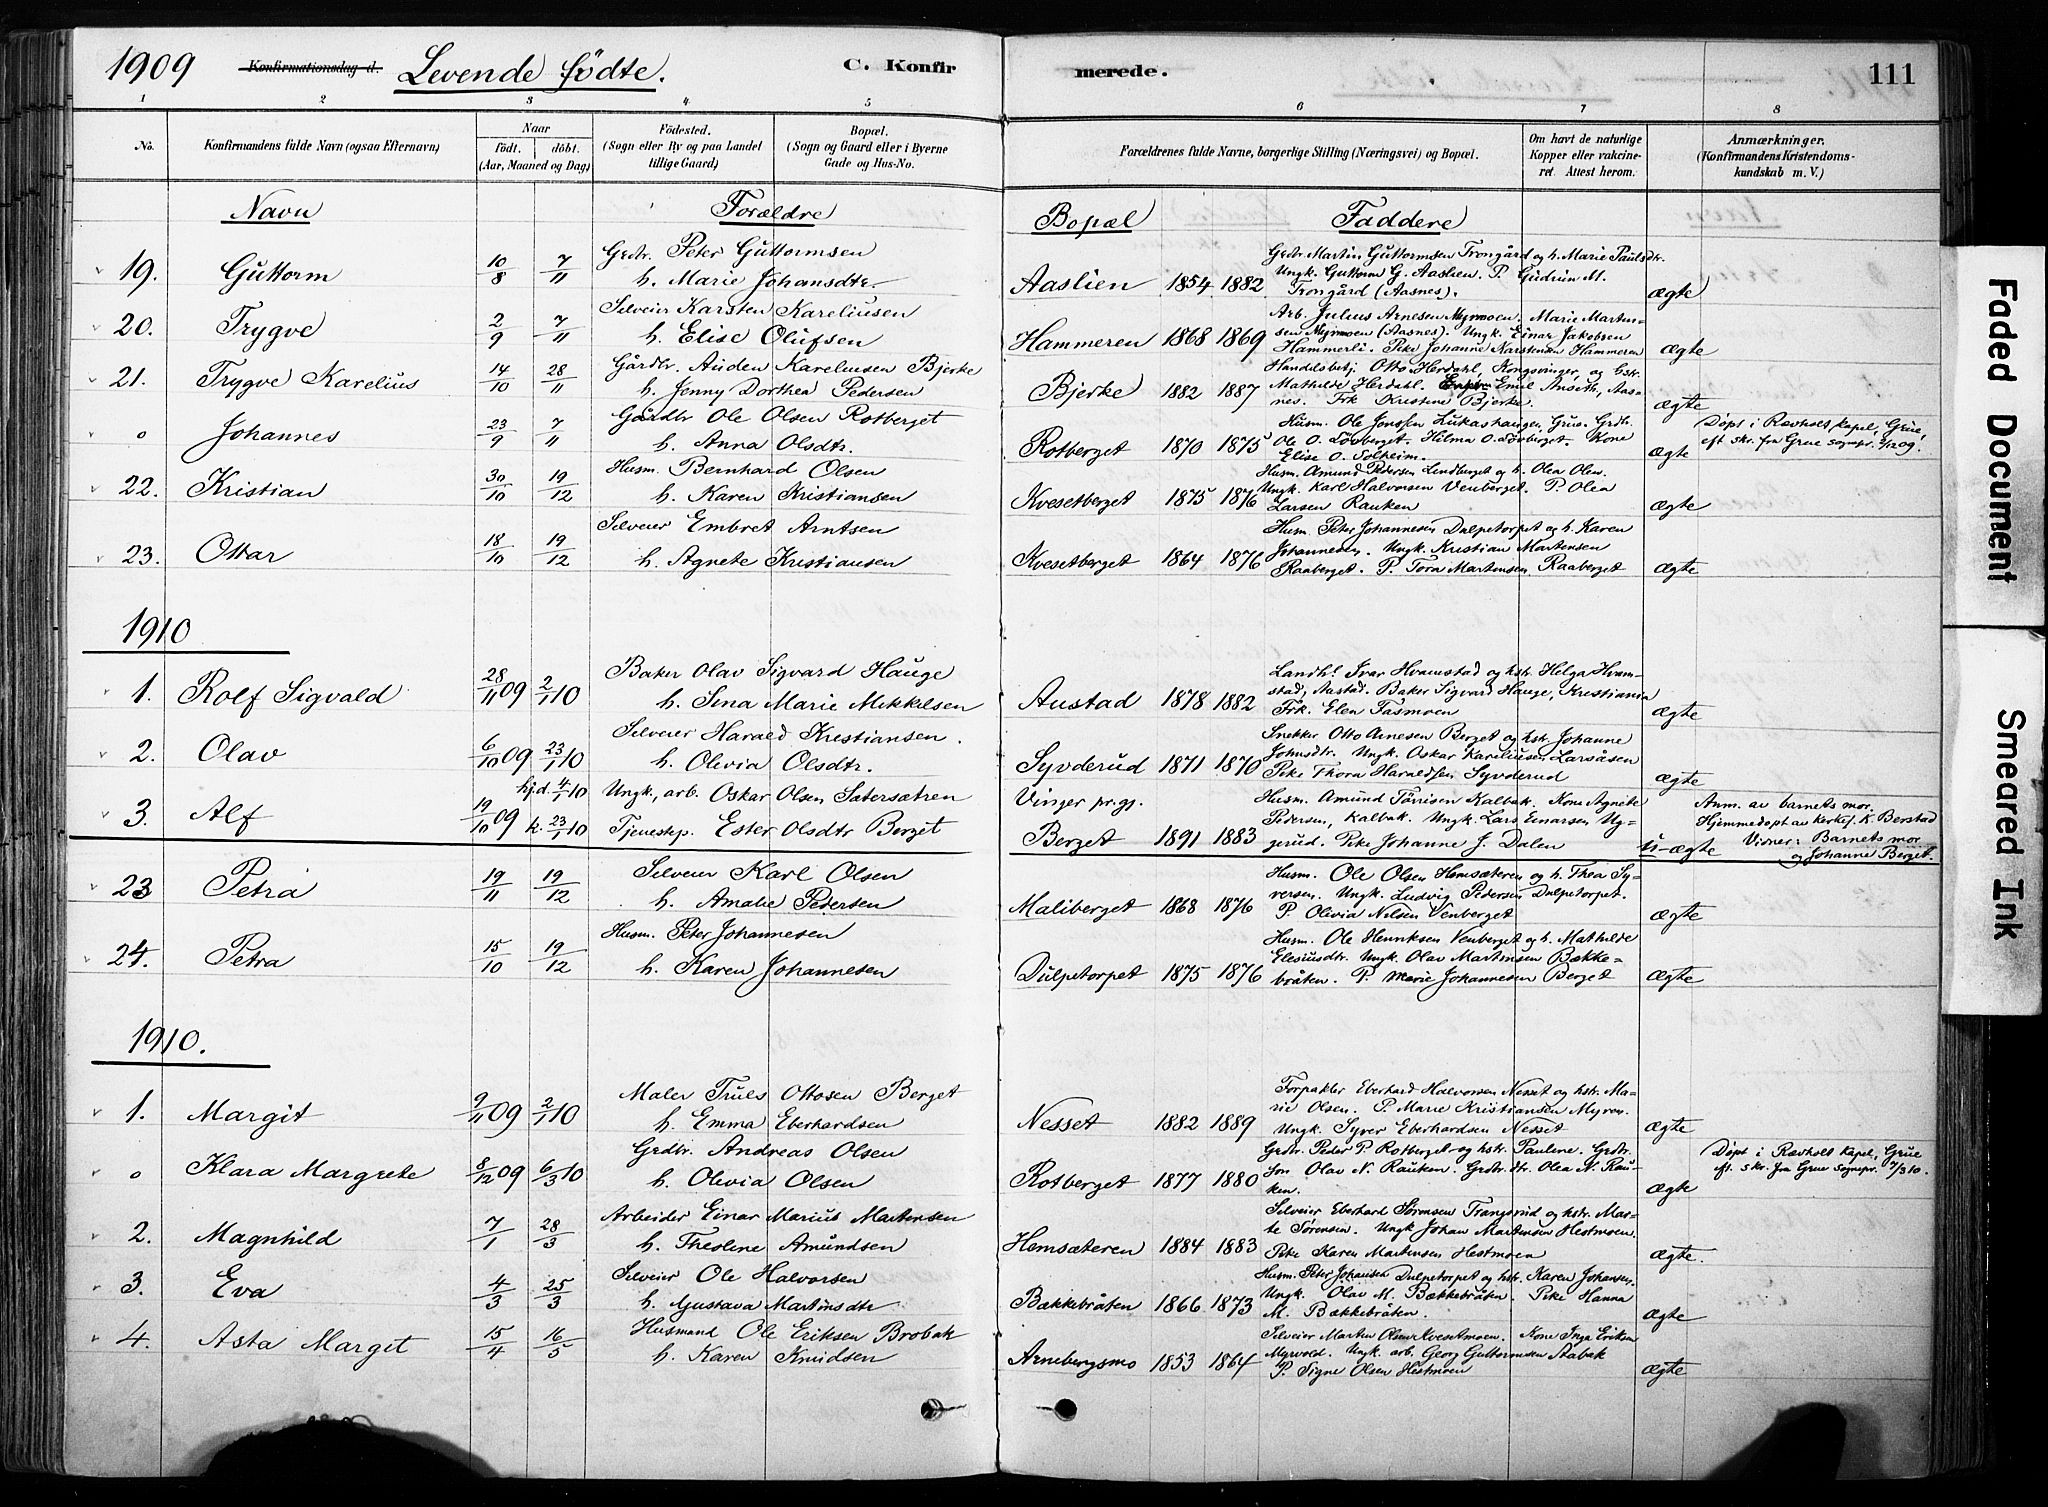 1909 Konfirmationsdag d. Levende födte. C. Konfirmerede. 111
1 2 3 4 5 6 7 8
No. Konfirmandens fulde Navn (ogsaa Efternavn) Naar födt. döbt. (Aar, Maaned og Dag) Födested. (Sogn eller By og paa Landet tillige Gaard) Bopæl. (Sogn og Gaard eller i Byerne Gade og Hus-No. Forældrenes fulde Navne, borgerlige Stilling (Næringsvei) og Bopæl. Om havt de naturlige Kopper eller vakcineret. Attest herom. Anmærkninger. (Konfirmandens Kristendomskundskab m. V.)
Navn Forældre Bopæl Faddere
19. Guttorm 10/8 7/11 Grdbr. Peter Guttormsen
h. Marie Johansdtr. Aaslien 1854. 1882
Grdbr. Martin Guttormsen Trongård og h. Marie Paulsdtr.
Ungk. Guttorm G. Aaslien. P. Gudrun M.
Trongård (Aasnes). ægte
20. Trygve 2/9 7/11 Selveier Karsten Kareliusen
h. Elise Olufsen Hammeren 1868 1869
Arb. Julius Arnesen Myrmoen. Marie Marten-
sen Myrmoen (Aasnes). Ungk. Einar Jakobsen
Hammerli. Pike Johanne Karstensen Hammeren ægte
21. Trygve Karelius 14/10 28/11 Gårdbr. Auden Kareliusen Bjerke
h. Jenny Dorthea Pedersen Bjerke 1882 1887
Handelsbetj. Otto Herdahl, Kongsvinger, og hstr.
Mathilde Herdahl. Emil Anseth, Aas-
nes. Frk Kristine Bjerke. ægte
o Johannes 23/9 7/11 Gårdbr Ole Olsen Rotberget
h. Anna Olsdtr. Rotberget 1870 1875
Husm. Ole Jonssen Lukashaugen, Grue. Grdbr.
Ole O. Lövberget. Hilma O. Lövberget. Kone
Elise O. Solheim. ægte
Döpt i Revholt kapel, Grue,
eft skr. fra Grue sognepr.
22. Kristian 30/10 19/12 Husm. Bernhard Olsen
h. Karen Kristiansen Kvesetberget 1875 1876
Husm. Amund Pedersen Lundberget og h. Olea Olsen.
Ungk. Karl Halvorsen Venberget. P. Olea
Larsen Rauken ægte
23. Ottar 18/10 19/12 Selveier Embret Arntsen
h. Agnete Kristiansen Kvesetberget 1864 1876
Husm. Peter Johannesen Dulpetorpet og h. Karen
Johannesen. Ungk. Kristian Martensen
Raaberget. P. Tora Martensen, Raaberget ægte
1910
1. Rolf Sigvald 28/11 09 2/1 10 Baker Olav Sigvard Hauge
h. Sina Marie Mikkelsen Austad 1878 1882
Landh. Ivar Hvamstad og hstr. Helga Hvam-
stad, Aastad. Baker Sigvard Hauge, Kristiania
Frk. Elen Tasmoen ægte
2. Olav 6/10 09 23/1 10 Selveier Harald Kristiansen.
h. Olivia Olsdtr. Syvderud 1871 1870
Snekker Otto Arnesen Berget og hstr. Johanne
Johnsdtr. Ungk. Oskar Kareliusen Larsåsen
Pike Thora Haraldsen Syvderud ægte
3. Alf 19/10 09 hj.d. 4/1 10 k. 23/1 10 Ungk., arb. Oskar Olsen Satersætren
Tjenestep. Ester Olsdtr Berget Vinger pr.gj. Berget 1891 1883
Husm. Amund Törrisen Kalbak. Kone Agnete
Pedersen, Kalbak. Ungk. Lars Einarsen Ug-
gerud. Pike Johanne J. Dalen u-ægte
Anm. av barnets mor.
Hjemmedöpt av kirkes. K. Berstad
Visner: Barnets mor
og Johanne Berget.
23 Petra 19/11 19/12 Selveier Karl Olsen
h. Amalie Pedersen Maliberget 1868 1876
Husm. Ole Olsen Hemsæteren og h. Thea Sy-
versen. Ungk. Ludvig Pedersen Dulpetorpet.
P. Olivia Nilsen Venberget ægte
24. Petra 15/10 19/12 Husm. Peter Johannesen
h. Karen Johannesen Dulpetorpet 1875 1876
Husm. Ole Henriksen Venberget og h. Mathilde
Elesiusdtr. Ungk. Olav Martinsen Bække-
bråten. P. Marie Johannesen Berget ægte
1910.
1. Margit 9/11 09 2/1 10 Maler Truls Ottosen Berget
h. Emma Eberhardsen Nesset 1882 1889
Forpakter Eberhard Halvorsen Nesset og hstr. Ma-
rie Olsen. P. Marie Kristiansen Myren.
Ungk. Syver Eberhardsen Nesset ægte
o Klara Margrete 8/12 09 6/3 10 Grdbr. Andreas Olsen
h. Olivia Olsen Rotberget 1877 1880
Grdbr. Peder P. Rotberget og hstr. Pauline. Grdbr.
Son Olav N. Rauken. Grdbr. dtr. Olea N. Rau-
ken. ægte
Döpt i Revholt kapel, Grue
eft. skr. fra Grue sognepr. 7/3 10.
2. Magnhild 7/1 28/3 Arbeider Einar Marius Martinsen
h. Theoline Amundsen Hemsæteren 1884 1883
Selveier Eberhard Sörensen Trangsrud og hstr. Mar-
te Sörensen. Ungk Johan Martinsen Hestmoen.
Pike Karen Martinsen Hestmoen ægte.
3. Eva 4/3 25/3 Selveier Ole Halvorsen
h. Gustava Martinsdtr Bækkebråten 1866 1873
Husm. Peter Johansen Dulpetorpet og hstr. Karen Johansen.
Ungk. Olav M. Bækkebråten. Pike Hanna
M. Bækkebråten. ægte
4. Asta Margit 15/4 16/5 Husmand Ole Eriksen Brobak
h. Karen Knudsen Arnebergsmo 1853 1864
Selveier Martin Olsen Kvesetmoen. Kone Inga Eriksen
Myrvold. Ungk. arb. Georg Guttormsen Aabak
P. Signe Olsen Hestmoen ægte
Faded Document
Smeared Ink